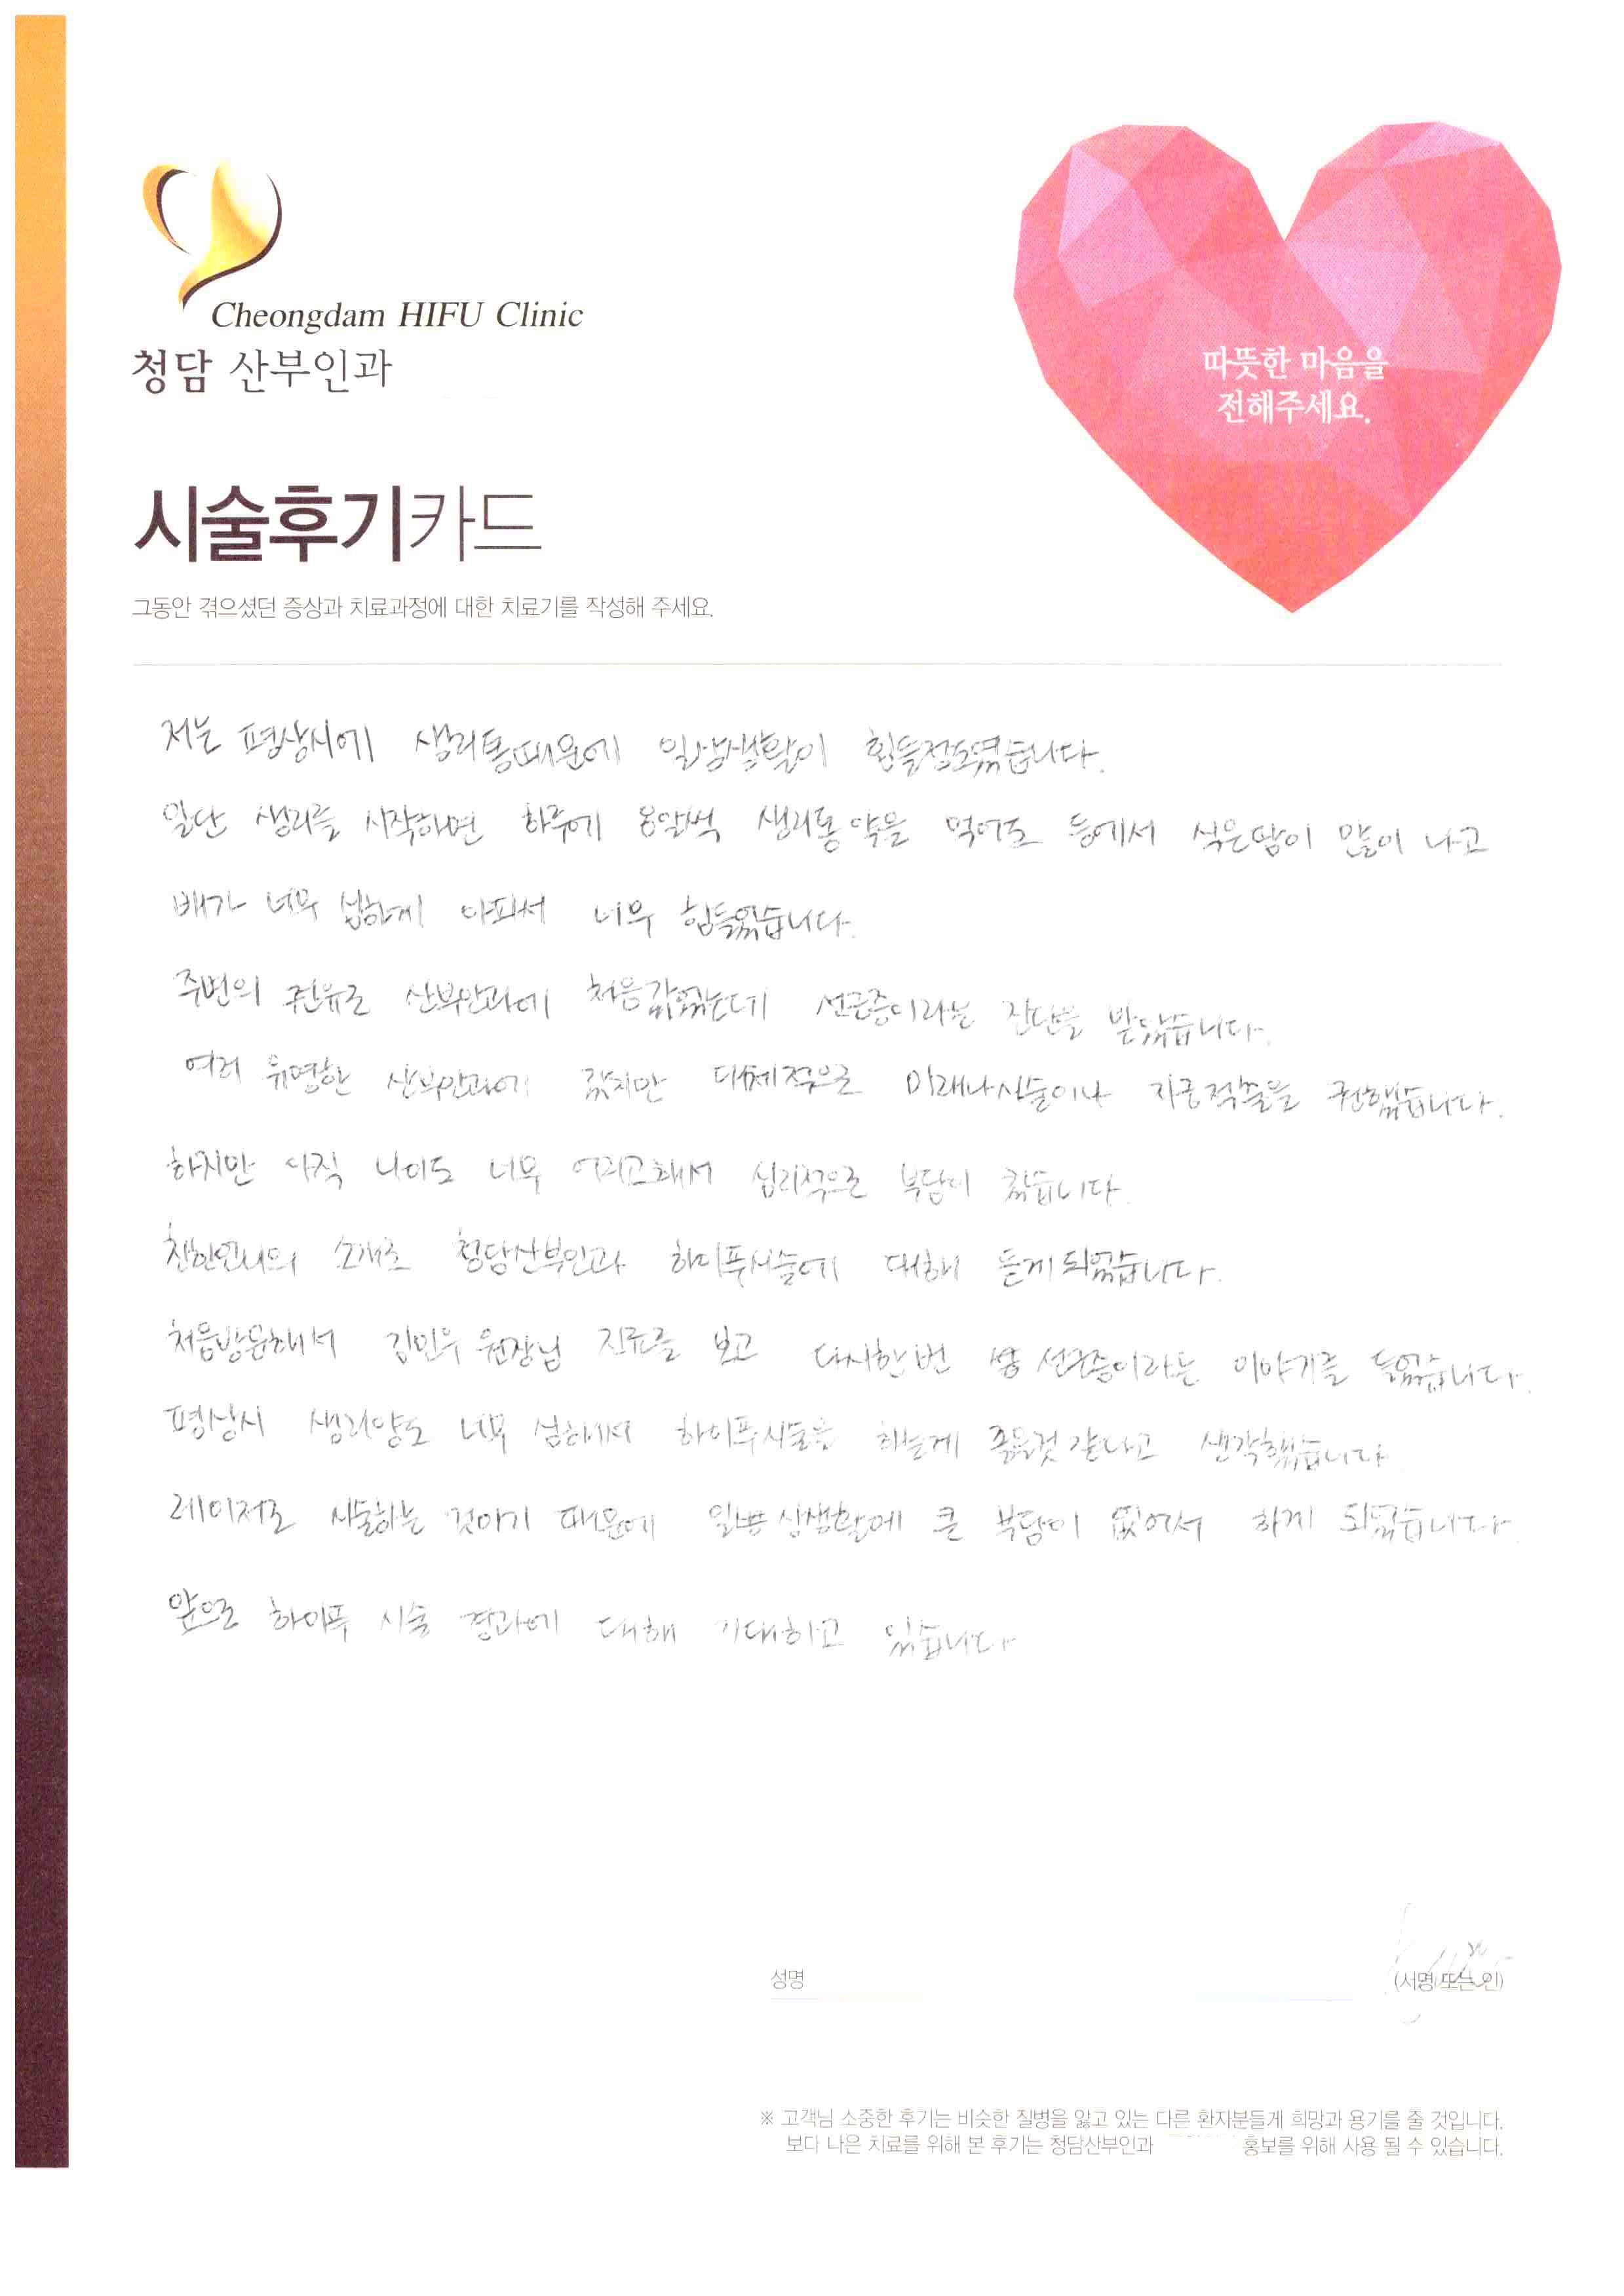 Cheongdam HIFU Clinic
청담 산부인과
따뜻한 마음을
전해주세요.
시술후기카드
그동안 겪으셨던 증상과 치료과정에 대한 치료기를 작성해 주세요.
저는 평상시에 생리통때문에 일상생활이 힘들정도였습니다.
일단 생리를 시작하면 하루에 8알씩 생리통약을 먹어도 등에서 식은땀이 많이 나고
배가 너무 심하게 아파서 너무 힘들었습니다.
주변의 권유로 산부인과에 처음갔었는데 선근증이라는 진단을 받았습니다.
여러 유명한 산부인과에 갔지만 대체적으로 미레나시술이나 자궁적출을 권했습니다.
하지만 아직 나이도 너무 어리고해서 심리적으로 부담이 컸습니다.
친한언니의 소개로 청담산부인과 하이푸시술에 대해 듣게되었습니다.
처음방문해서 김민우 원장님 진료를 보고 다시한번 선근증이라는 이야기를 들었습니다.
평상시 생리양도 너무 심해서 하이푸시술을 하는게 좋을것 같다고 생각했습니다.
레이저로 시술하는 것이기 때문에 일상생활에 큰 부담이 없어서 하게 되었습니다.
앞으로 하이푸 시술 결과에 대해 기대하고 있습니다.
성명
(서명 또는 인)
※ 고객님 소중한 후기는 비슷한 질병을 앓고 있는 다른 환자분들게 희망과 용기를 줄 것입니다.
보다 나은 치료를 위해 본 후기는 청담산부인과 홍보를 위해 사용 될 수 있습니다.